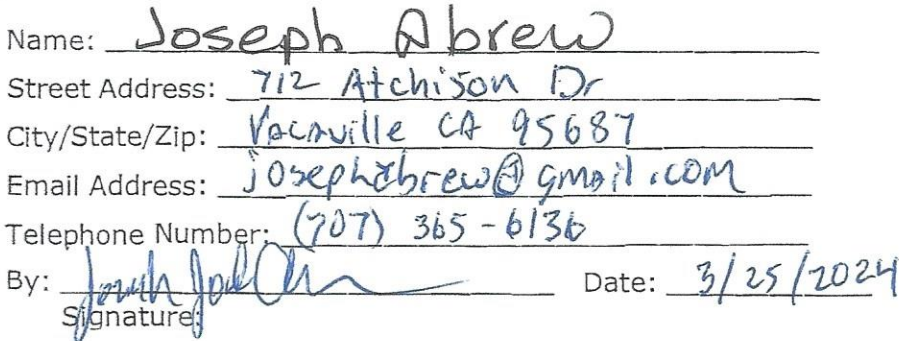 Name: Joseph Abrew
Street Address: 712 Atchison Dr
City/State/Zip: Vacaville CA 95687
Email Address: josephabrew@gmail.com
Telephone Number: (707) 365-6136
By: Date: 3/25/2024
Signature: